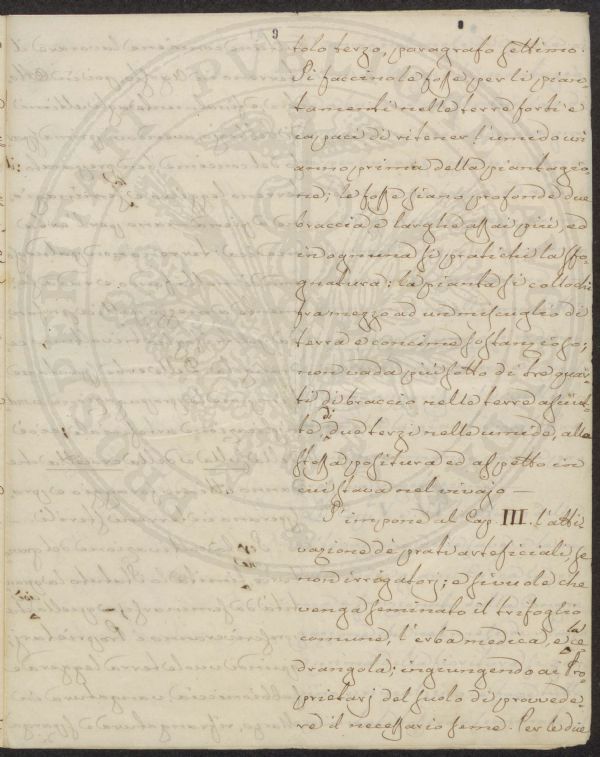 9
8
tolo terzo, paragrafo settimo.
Si faccino le fosse per li pian-
tamenti nelle terre forti e
capaci di ritener l'umido un
anno prima della piantagio-
ne; le fosse siano profonde due
braccia e larghe assai più, ed
in ognuna si pratichi la fo-
gnatura: la pianta si collochi
framezzo ad un miscuglio di
terra e concime sostanzioso;
non vada più sotto di tre quar-
ti di braccio nelle terre asciut-
te, di due terzi nelle umide, alla
stessa positura ed aspetto in
cui stava nel vivajo —
S'impone al Cap. III. l'atti-
vazione de' prati arteficiali se
non irrigatorj; e si vuole che
venga seminato il trifoglio
comune, l'erba medica, e la ce-
drangola; ingiungendo ai Pro-
prietarj del suolo di provvede-
re il necessario seme. Per le due
PROSPERITATI PVBLICAE